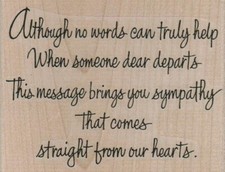 Although no words can truly help
When someone dear departs
This message brings you sympathy
That comes
straight from our hearts.